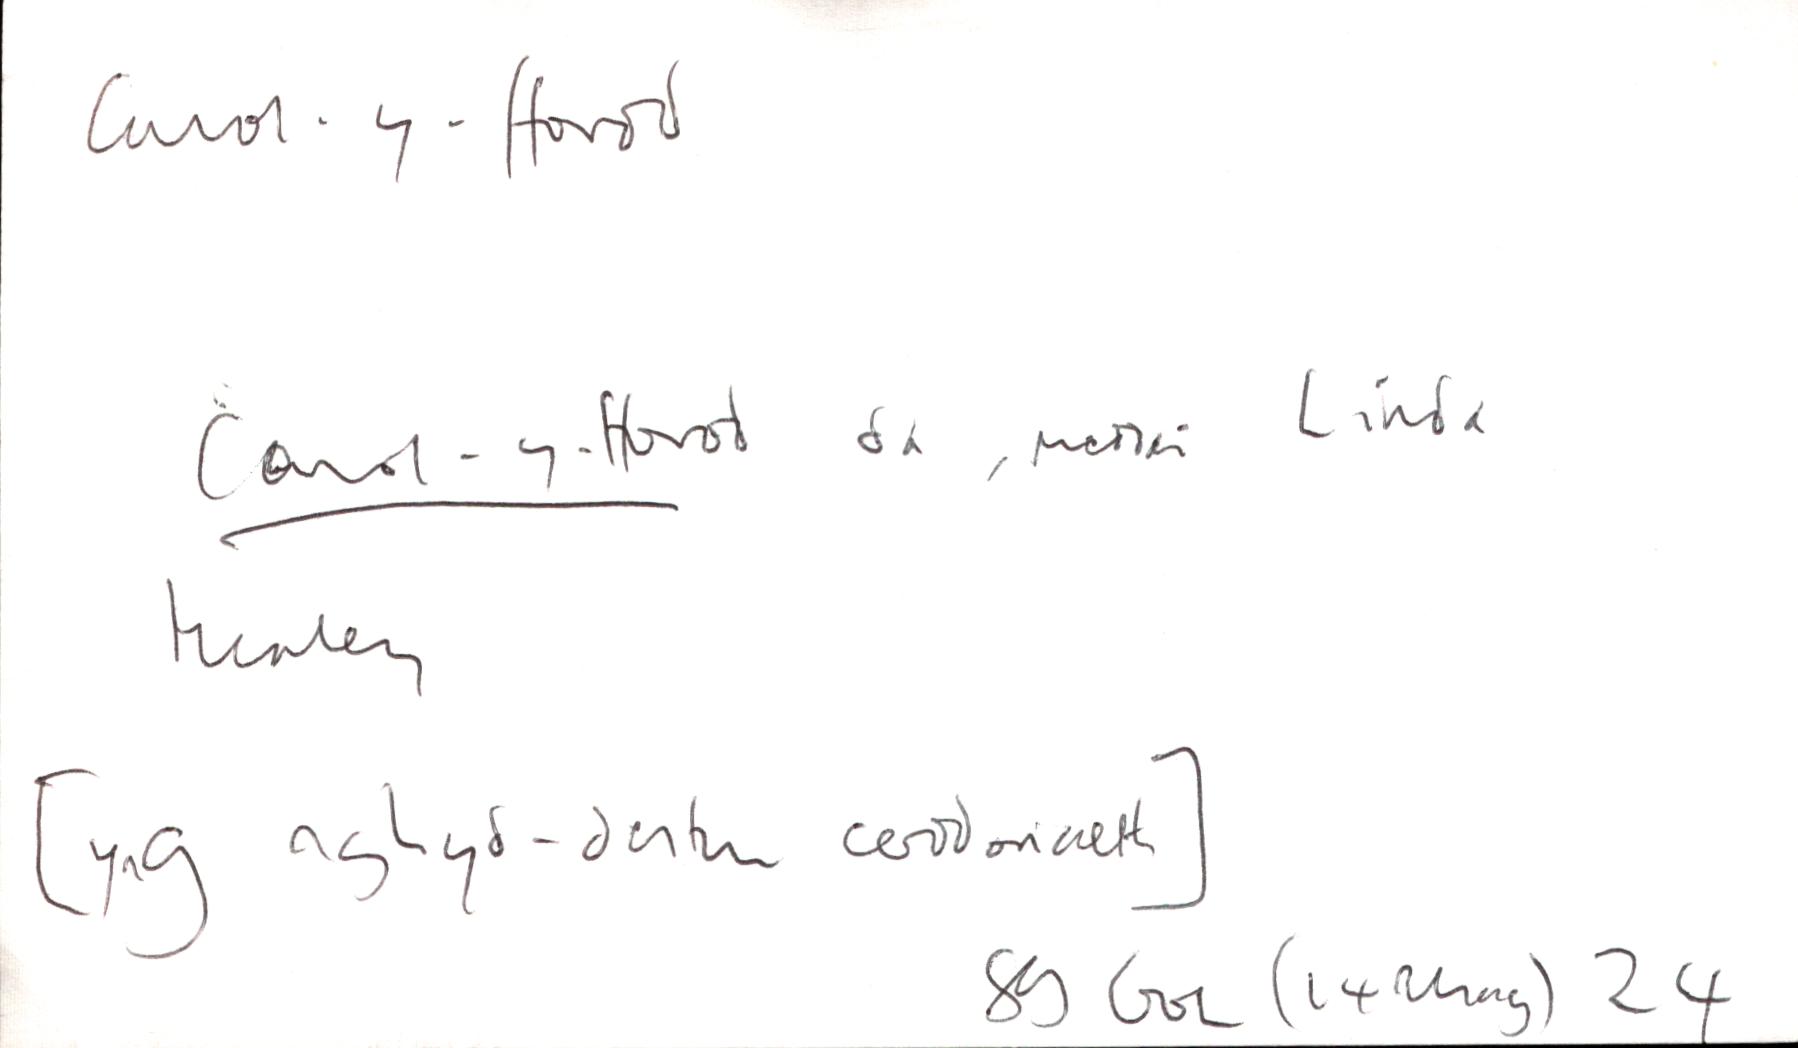 Carol-y-Ffordd
Carol-y-Ffordd da, meddai Linda
Healey
[yng nghyd-destun cerddoriaeth]
89 Gol (14 Rhag) 24